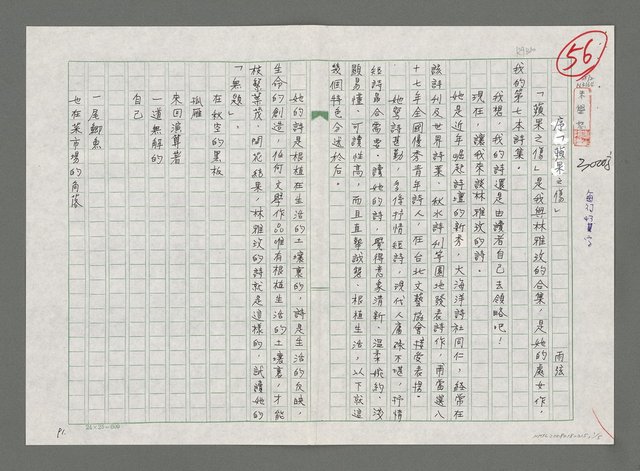 56
序「蘋果之傷」 雨弦
「蘋果之傷」是我與林雅玟的合集，是她的處女作，
我的第七本詩集。
我想，我的詩還是由讀者自己去領略吧！
現在，讓我來談林雅玟的詩。
她是近年崛起詩壇的新秀，大海洋詩社同仁，經常在
該詩刊及世界詩葉、秋水詩刊等園地發表詩作，甫當選八
十七年全國優秀青年詩人，在台北文藝協會接受表揚。
她寫詩甚勤，多係抒情短詩，現代人庸碌不堪，抒情
短詩最合需要。讀她的詩，覺得意象清新、溫柔婉約、淺
顯易懂、可讀性高，而且真摯誠懇、根植生活，以下就這
幾個特色分述於后。
她的詩是根植在生活的土壤裏的，詩是生活的反映，
生命的創造，任何文學作品唯有根植生活的土壤裏，才能
枝繁葉茂、開花結果，林雅玟的詩就是這樣的，試讀她的
「無題」：
在秋空的黑板
孤雁
來回演算著
一道無解的
自己
一尾鯽魚
也在菜市場的角落
P1.
24×25=600